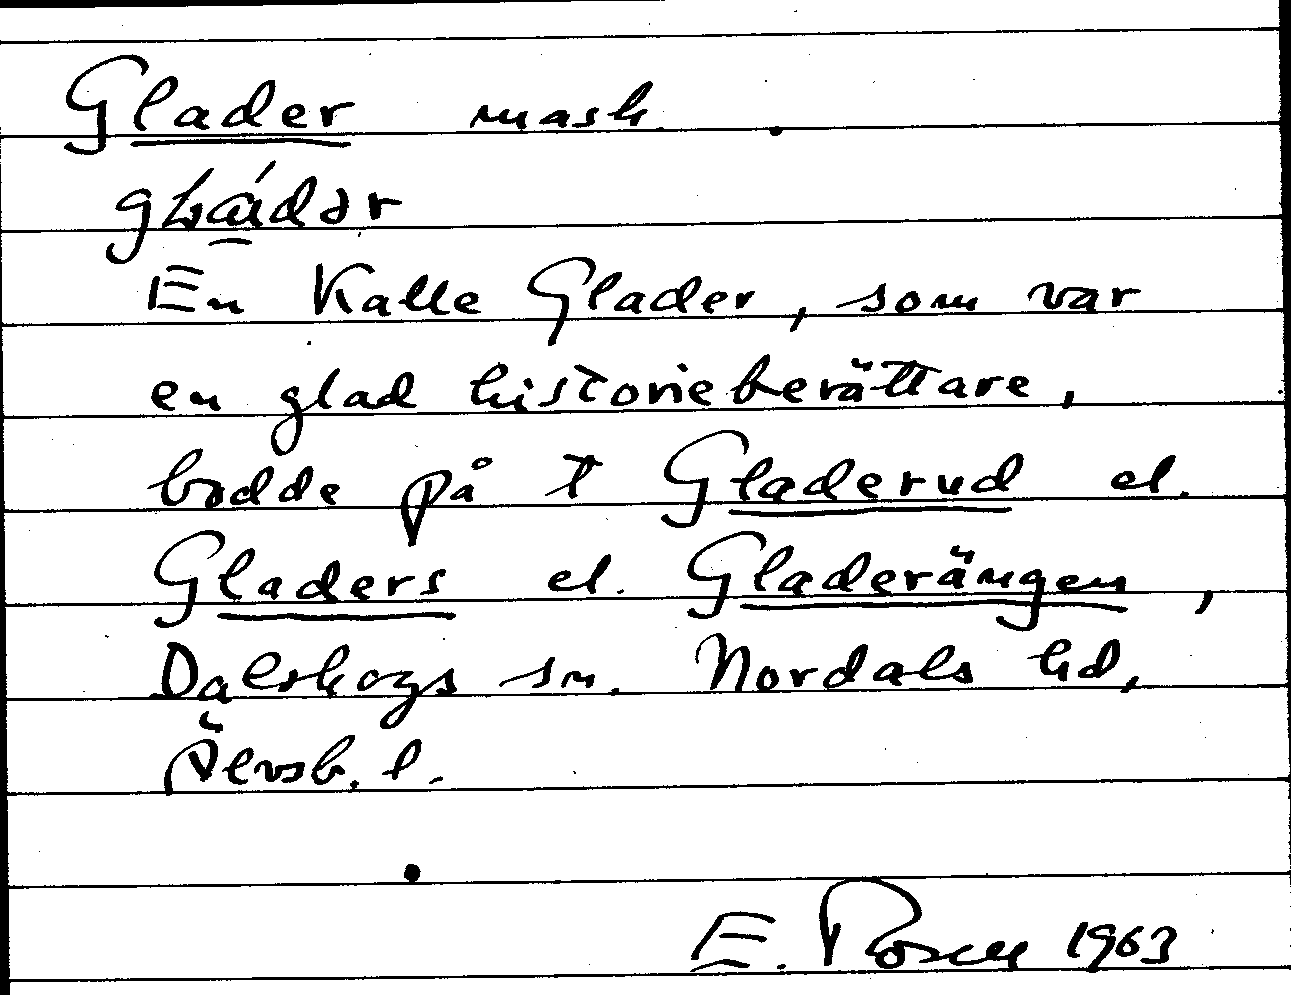 Glader mask.
En Kalle Glader, som var
en glad historieberättare,
bodde på t Gladerud el.
Gladers el. Gladerängen,
Dalskogs sn. Nordals hd,
Älvsb. l.
E. Rosell 1963